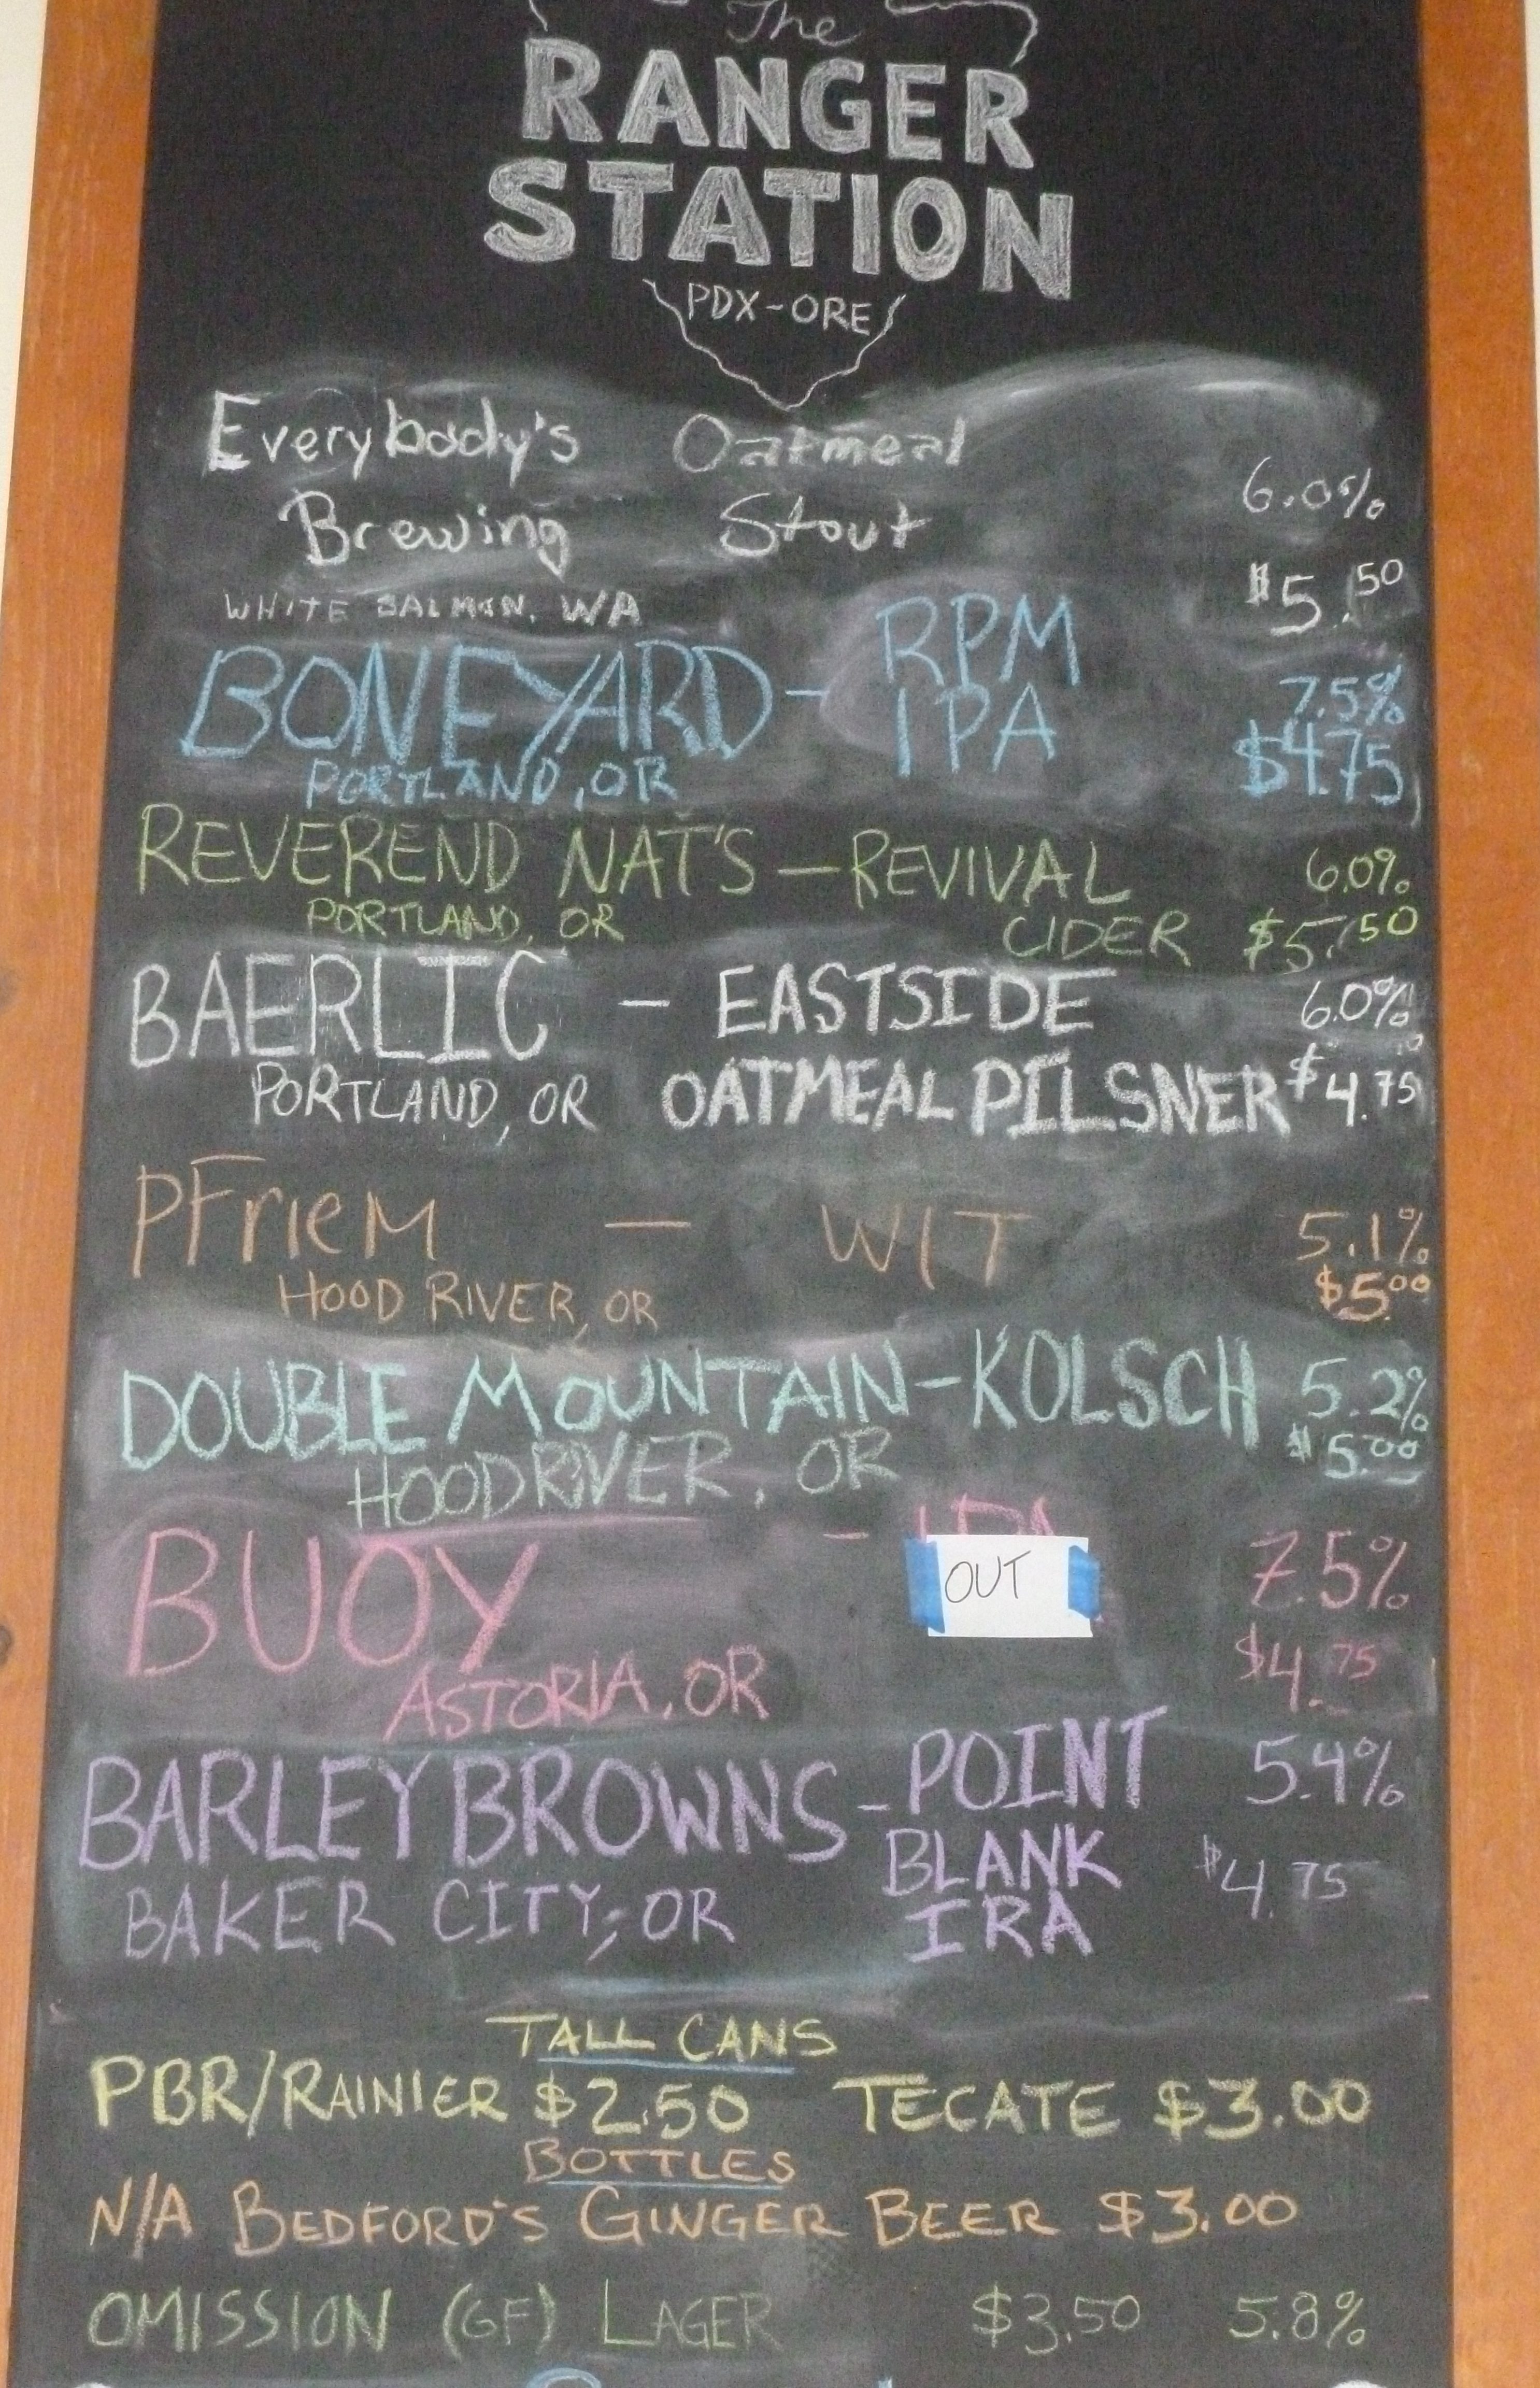 The
RANGER
STATION
PDX-ORE
Everybody's Oatmeal
Brewing Stout 6.0%
WHITE SALMON, WA $5.50
BONEYARD - RPM
IPA 7.5%
PORTLAND, OR $4.75
REVEREND NAT'S - REVIVAL 6.0%
PORTLAND, OR CIDER $5.50
BAERLIC - EASTSIDE 6.0%
PORTLAND, OR OATMEAL PILSNER $4.75
PFrieM - WIT 5.1%
HOOD RIVER, OR $5.00
DOUBLE MOUNTAIN - KOLSCH 5.2%
HOOD RIVER, OR $5.00
BUOY - OUT 7.5%
ASTORIA, OR $4.75
BARLEY BROWNS - POINT 5.4%
BLANK $4.75
BAKER CITY, OR IRA
TALL CANS
PBR/RAINIER $2.50 TECATE $3.00
BOTTLES
N/A BEDFORD'S GINGER BEER $3.00
OMISSION (GF) LAGER $3.50 5.8%